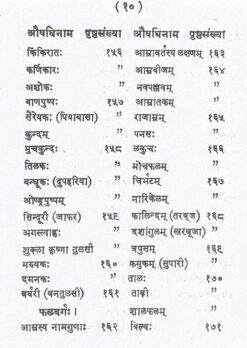 ( १० )
औषधिनाम पृष्ठसंख्या औषधिनाम पृष्ठसंख्या
किंकिरातः १५६ आम्रावर्तस्य लक्षणम् १६३
कर्णिकारः " आम्रबीजम् "
अशोकः " नवपल्लवम् "
बाणपुष्पः १५७ आम्रातकम् "
सैरेयकः (पियाबासा) " राजाम्रम् १६५
कुन्दम् " पनसः "
मुचकुन्दः १५८ लकुचः १६६
तिलकः " मोचफलम् "
बन्धूकः (दुपहरिया) " चिर्भटम् १६७
ओण्ड्रपुष्पम् " नारिकेलम् "
सिन्दूरी (जाफर) १५९ कालिन्दम् (तरबूज) १६८
अगस्त्याह्वः " दशांगुलम् (खरबूजा) "
शुक्ला कृष्णा तुलसी " त्रपुसम् १६९
मरुवकः १६० क्रमुकम् (सुपारी) "
दमनकः " तालः १७०
बर्बरी (बनतुलसी) १६१ ताडी "
फलवर्गः। शालफलम् "
आम्रस्य नामगुणाः १६२ बिल्वः १७१